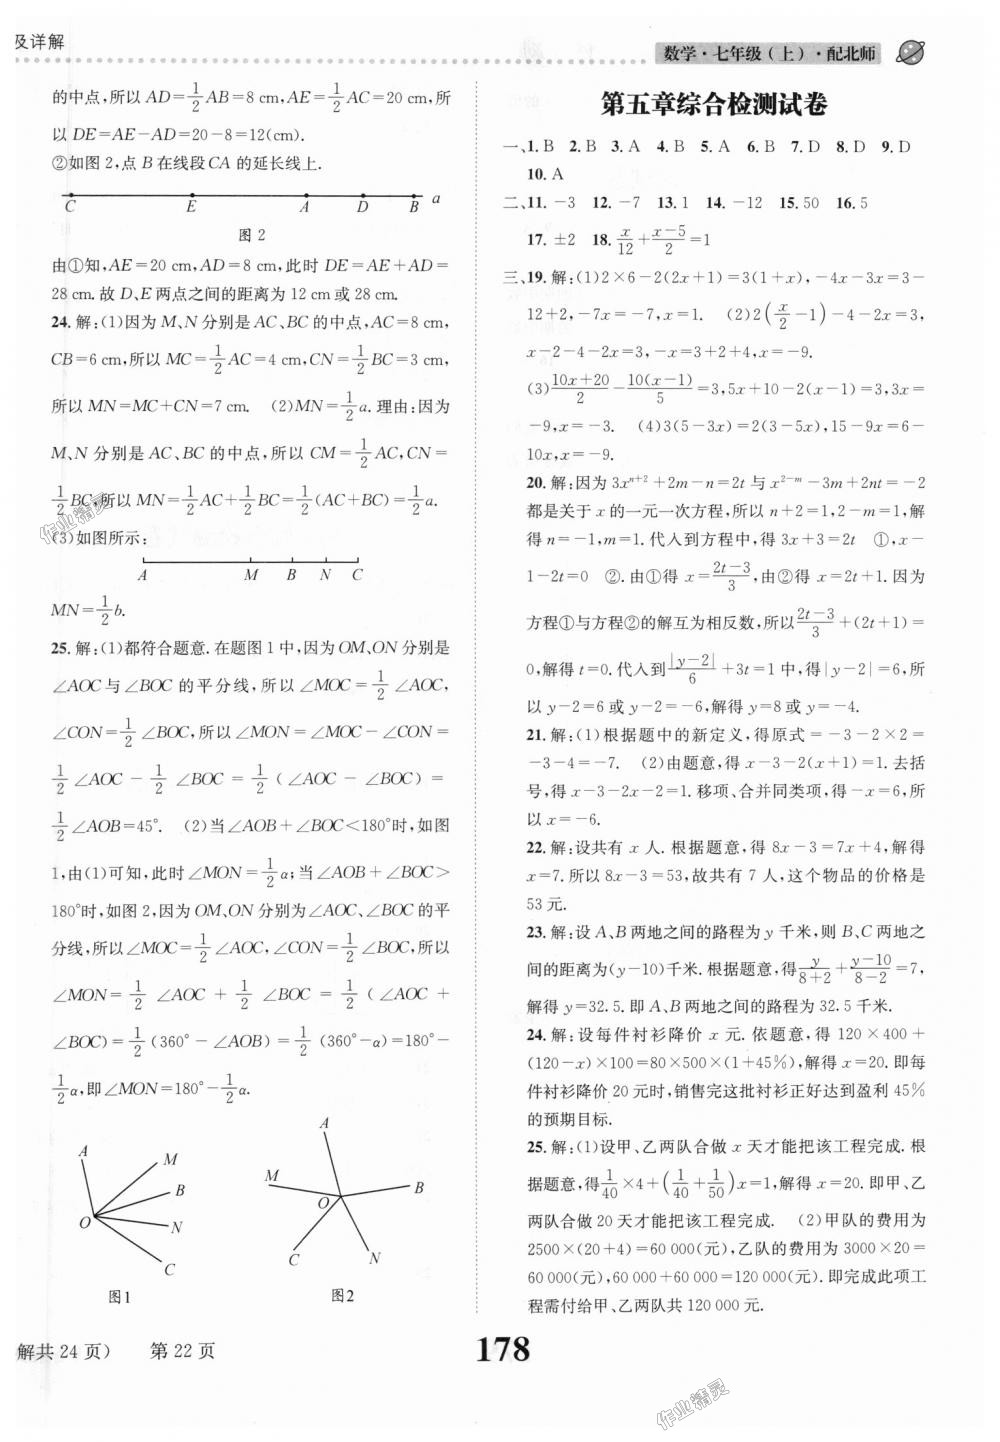 及详解
数学·七年级(上)·配北师
的中点,所以 AD=1/2AB=8 cm,AE=1/2AC=20 cm,所
以 DE=AE-AD=20-8=12(cm).
②如图 2,点 B 在线段 CA 的延长线上.
C E A D B a
图 2
由①知,AE=20 cm,AD=8 cm,此时 DE=AE+AD=
28 cm. 故 D、E 两点之间的距离为 12 cm 或 28 cm.
24. 解:(1)因为 M、N 分别是 AC、BC 的中点,AC=8 cm,
CB=6 cm,所以 MC=1/2AC=4 cm,CN=1/2BC=3 cm,
所以 MN=MC+CN=7 cm. (2)MN=1/2a. 理由:因为
M、N 分别是 AC、BC 的中点,所以 CM=1/2AC,CN=
1/2BC,所以 MN=1/2AC+1/2BC=1/2(AC+BC)=1/2a.
(3)如图所示:
A M B N C
MN=1/2b.
25. 解:(1)都符合题意. 在题图 1 中,因为 OM、ON 分别是
∠AOC 与∠BOC 的平分线,所以∠MOC=1/2∠AOC,
∠CON=1/2∠BOC,所以∠MON=∠MOC-∠CON=
1/2∠AOC-1/2∠BOC=1/2(∠AOC-∠BOC)=
1/2∠AOB=45°. (2)当∠AOB+∠BOC<180°时,如图
1,由(1)可知,此时∠MON=1/2α;当∠AOB+∠BOC>
180°时,如图 2,因为 OM、ON 分别为∠AOC、∠BOC 的平
分线,所以∠MOC=1/2∠AOC,∠CON=1/2∠BOC,所以
∠MON=1/2∠AOC+1/2∠BOC=1/2(∠AOC+
∠BOC)=1/2(360°-∠AOB)=1/2(360°-α)=180°-
1/2α,即∠MON=180°-1/2α.
A M B O N C
图1
A M B O C N
图2
第五章综合检测试卷
一、1. B 2. B 3. A 4. B 5. A 6. B 7. D 8. D 9. D
10. A
二、11. -3 12. -7 13. 1 14. -12 15. 50 16. 5
17. ±2 18. x/12+(x-5)/2=1
三、19. 解:(1)2×6-2(2x+1)=3(1+x),-4x-3x=3-
12+2,-7x=-7,x=1. (2)2(x/2-1)-4-2x=3,
x-2-4-2x=3,-x=3+2+4,x=-9.
(3)(10x+20)/2-10(x-1)/5=3,5x+10-2(x-1)=3,3x=
-9,x=-3. (4)3(5-3x)=2(3-5x),15-9x=6-
10x,x=-9.
20. 解:因为 3xⁿ⁺²+2m-n=2t 与 x²⁻ᵐ-3m+2nt=-2
都是关于 x 的一元一次方程,所以 n+2=1,2-m=1,解
得 n=-1,m=1. 代入到方程中,得 3x+3=2t ①,x-
1-2t=0 ②. 由①得 x=(2t-3)/3,由②得 x=2t+1. 因为
方程①与方程②的解互为相反数,所以(2t-3)/3+(2t+1)=
0,解得 t=0. 代入到|y-2|/6+3t=1 中,得|y-2|=6,所
以 y-2=6 或 y-2=-6,解得 y=8 或 y=-4.
21. 解:(1)根据题中的新定义,得原式=-3-2×2=
-3-4=-7. (2)由题意,得 x-3-2(x+1)=1. 去括
号,得 x-3-2x-2=1. 移项、合并同类项,得-x=6,所
以 x=-6.
22. 解:设共有 x 人. 根据题意,得 8x-3=7x+4,解得
x=7. 所以 8x-3=53,故共有 7 人,这个物品的价格是
53 元.
23. 解:设 A、B 两地之间的路程为 y 千米,则 B、C 两地之
间的距离为(y-10)千米. 根据题意,得y/(8+2)+(y-10)/(8-2)=7,
解得 y=32.5. 即 A、B 两地之间的路程为 32.5 千米.
24. 解:设每件衬衫降价 x 元. 依题意,得 120×400+
(120-x)×100=80×500×(1+45%),解得 x=20. 即每
件衬衫降价 20 元时,销售完这批衬衫正好达到盈利 45%
的预期目标.
25. 解:(1)设甲、乙两队合做 x 天才能把该工程完成. 根
据题意,得1/40×4+(1/40+1/50)x=1,解得 x=20. 即甲、乙
两队合做 20 天才能把该工程完成. (2)甲队的费用为
2500×(20+4)=60 000(元),乙队的费用为 3000×20=
60 000(元),60 000+60 000=120 000(元). 即完成此项工
程需付给甲、乙两队共 120 000 元.
解共 24 页) 第 22 页
178
作业精灵
作业精灵